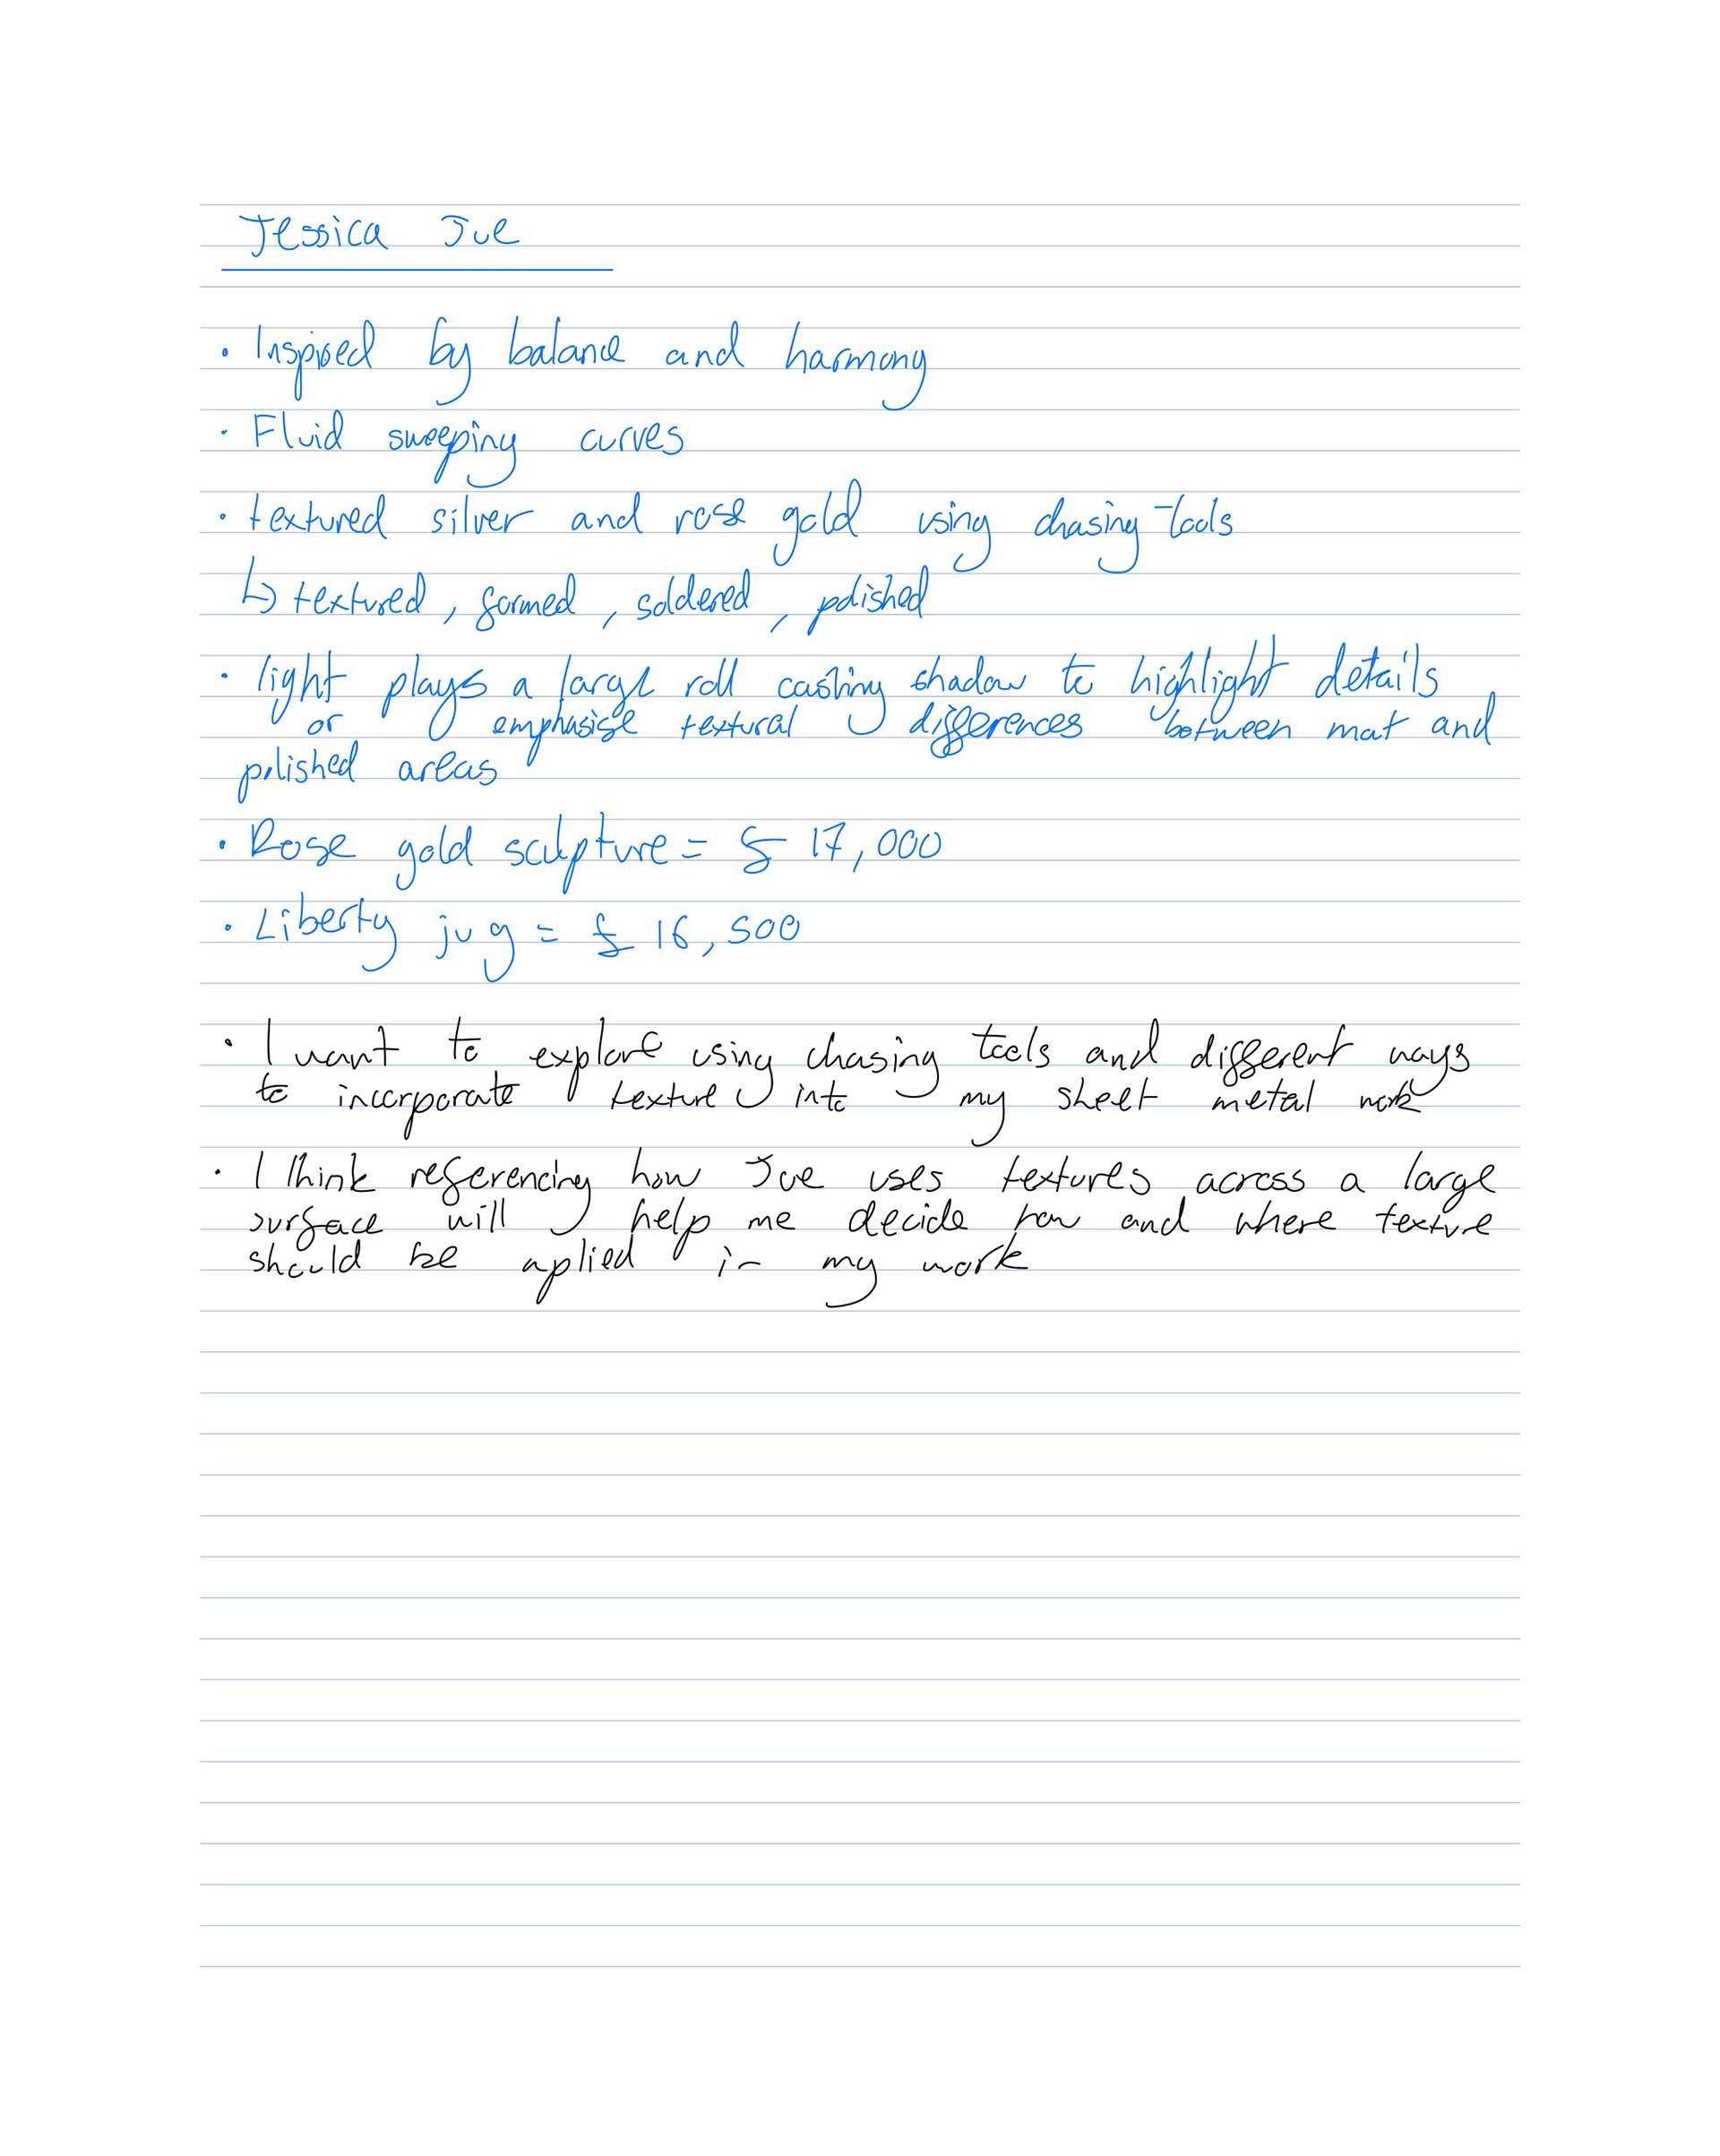 Jessica Jue
• Inspired by balance and harmony
• Fluid sweeping curves
• textured silver and rose gold using chasing tools
↳ textured, formed, soldered, polished
• light plays a large roll casting shadow to highlight details
or emphasise textural differences between mat and
polished areas
• Rose gold sculpture = £ 17,000
• Liberty jug = £ 16,500
• I want to explore using chasing tools and different ways
to incorporate texture into my sheet metal work
• I think referencing how Jue uses textures across a large
surface will help me decide how and where texture
should be aplied in my work